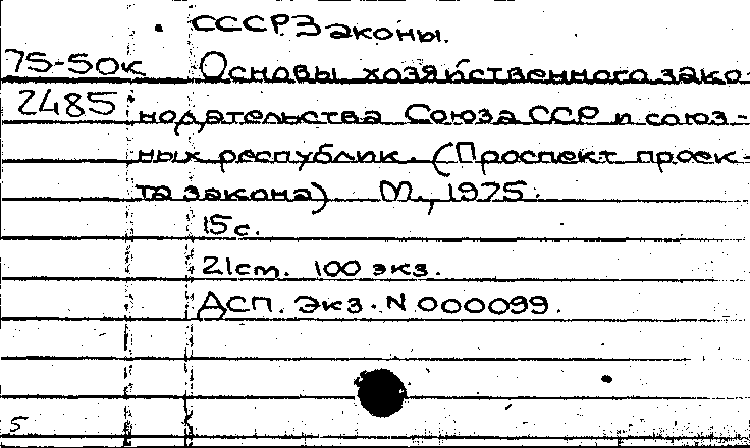 СССР. Законы.
75-50к Основы хозяйственного зако-
2485 нодательства Союза ССР и союз-
ных республик. (Проспект проек-
та закона) М., 1975.
15с.
21cm. 100 экз.
ДСП. Экз. N 000099.
5